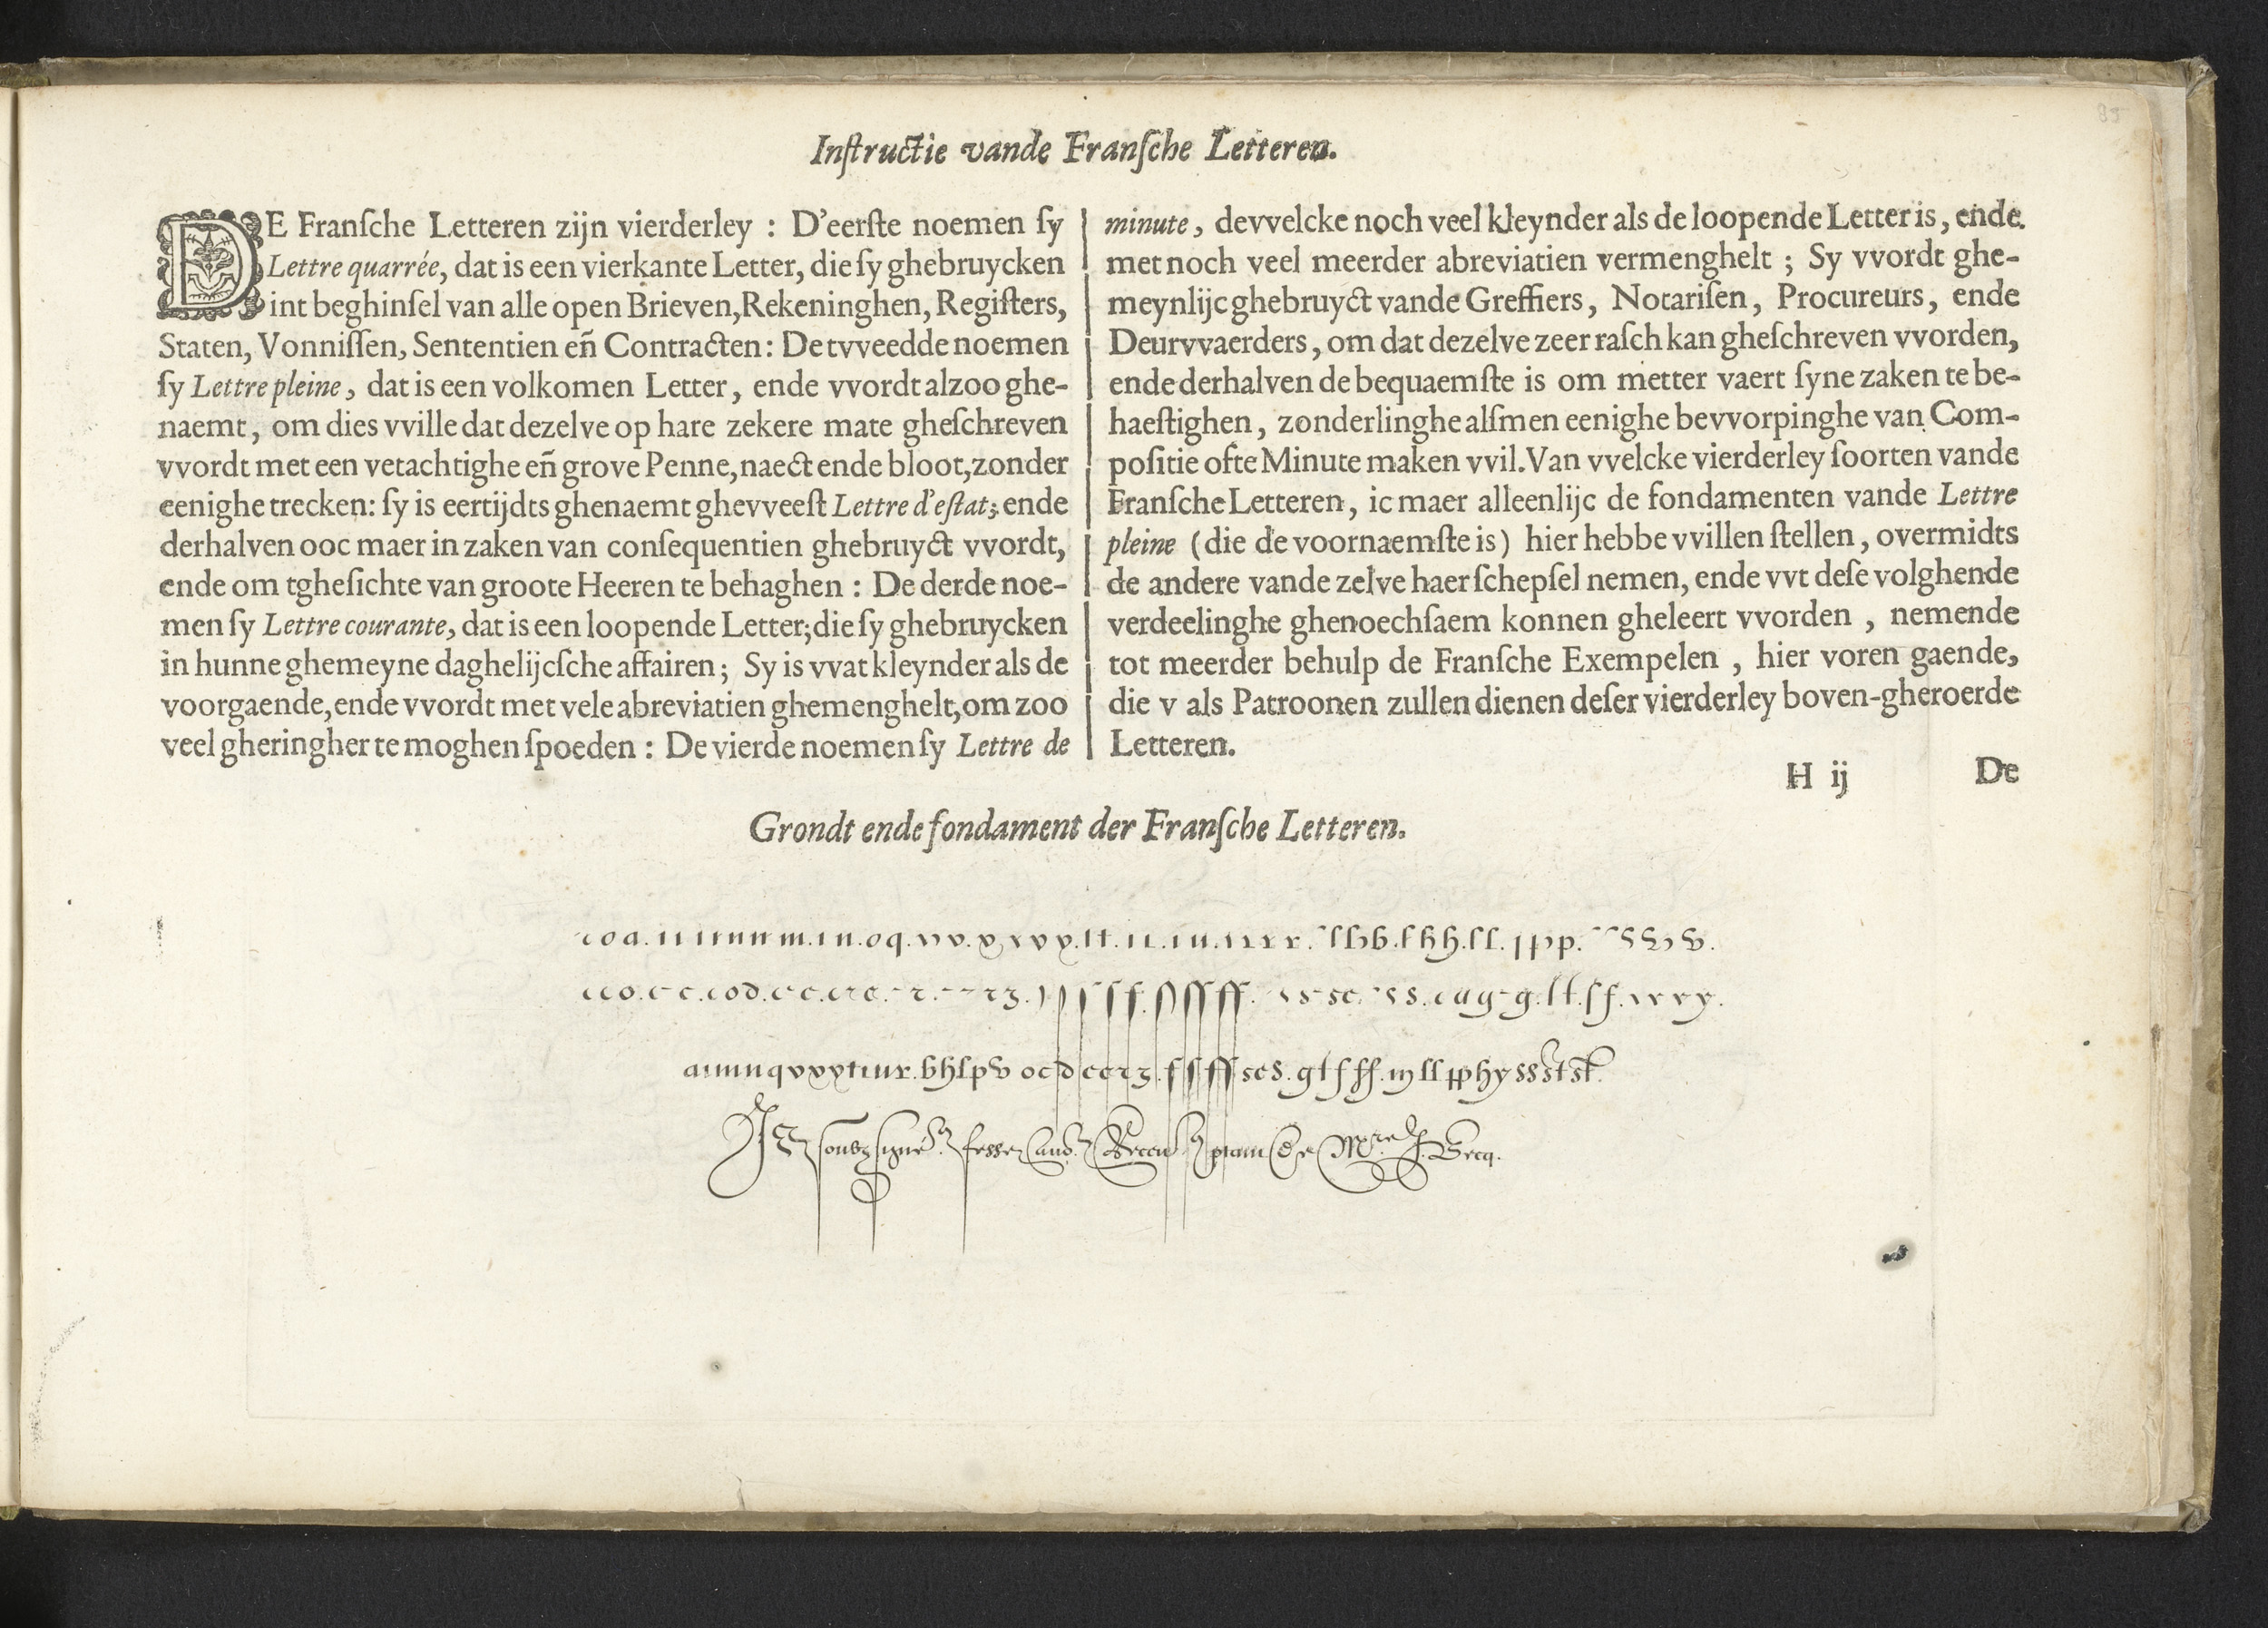 Inſtructie vande Franſche Letteren.
DE Franſche Letteren zijn vierderley : D'eerſte noemen ſy
Lettre quarrée, dat is een vierkante Letter, die ſy ghebruycken
int beghinſel van alle open Brieven, Rekeninghen, Regiſters,
Staten, Vonniſſen, Sententien en̄ Contracten: De tvveedde noemen
ſy Lettre pleine, dat is een volkomen Letter, ende vvordt alzoo ghe-
naemt, om dies vville dat dezelve op hare zekere mate gheſchreven
vvordt met een vetachtighe en̄ grove Penne, naect ende bloot, zonder
eenighe trecken: ſy is eertijdts ghenaemt ghevveeſt Lettre d'eſtat; ende
derhalven ooc maer in zaken van conſequentien ghebruyct vvordt,
ende om tgheſichte van groote Heeren te behaghen : De derde noe-
men ſy Lettre courante, dat is een loopende Letter; die ſy ghebruycken
in hunne ghemeyne daghelijcſche affairen; Sy is vvat kleynder als de
voorgaende, ende vvordt met vele abreviatien ghemenghelt, om zoo
veel gheringher te moghen ſpoeden : De vierde noemen ſy Lettre de
minute, devvelcke noch veel kleynder als de loopende Letter is, ende
met noch veel meerder abreviatien vermenghelt ; Sy vvordt ghe-
meynlijc ghebruyct vande Greffiers, Notariſen, Procureurs, ende
Deurvvaerders, om dat dezelve zeer raſch kan gheſchreven vvorden,
ende derhalven de bequaemſte is om metter vaert ſyne zaken te be-
haeſtighen, zonderlinghe alſmen eenighe bevvorpinghe van Com-
poſitie ofte Minute maken vvil. Van vvelcke vierderley ſoorten vande
Franſche Letteren, ic maer alleenlijc de fondamenten vande Lettre
pleine (die de voornaemſte is) hier hebbe vvillen ſtellen, overmidts
de andere vande zelve haer ſchepſel nemen, ende vvt deſe volghende
verdeelinghe ghenoechſaem konnen gheleert vvorden , nemende
tot meerder behulp de Franſche Exempelen , hier voren gaende,
die v als Patroonen zullen dienen deſer vierderley boven-gheroerde
Letteren.
H ij De
Grondt ende fondament der Franſche Letteren.